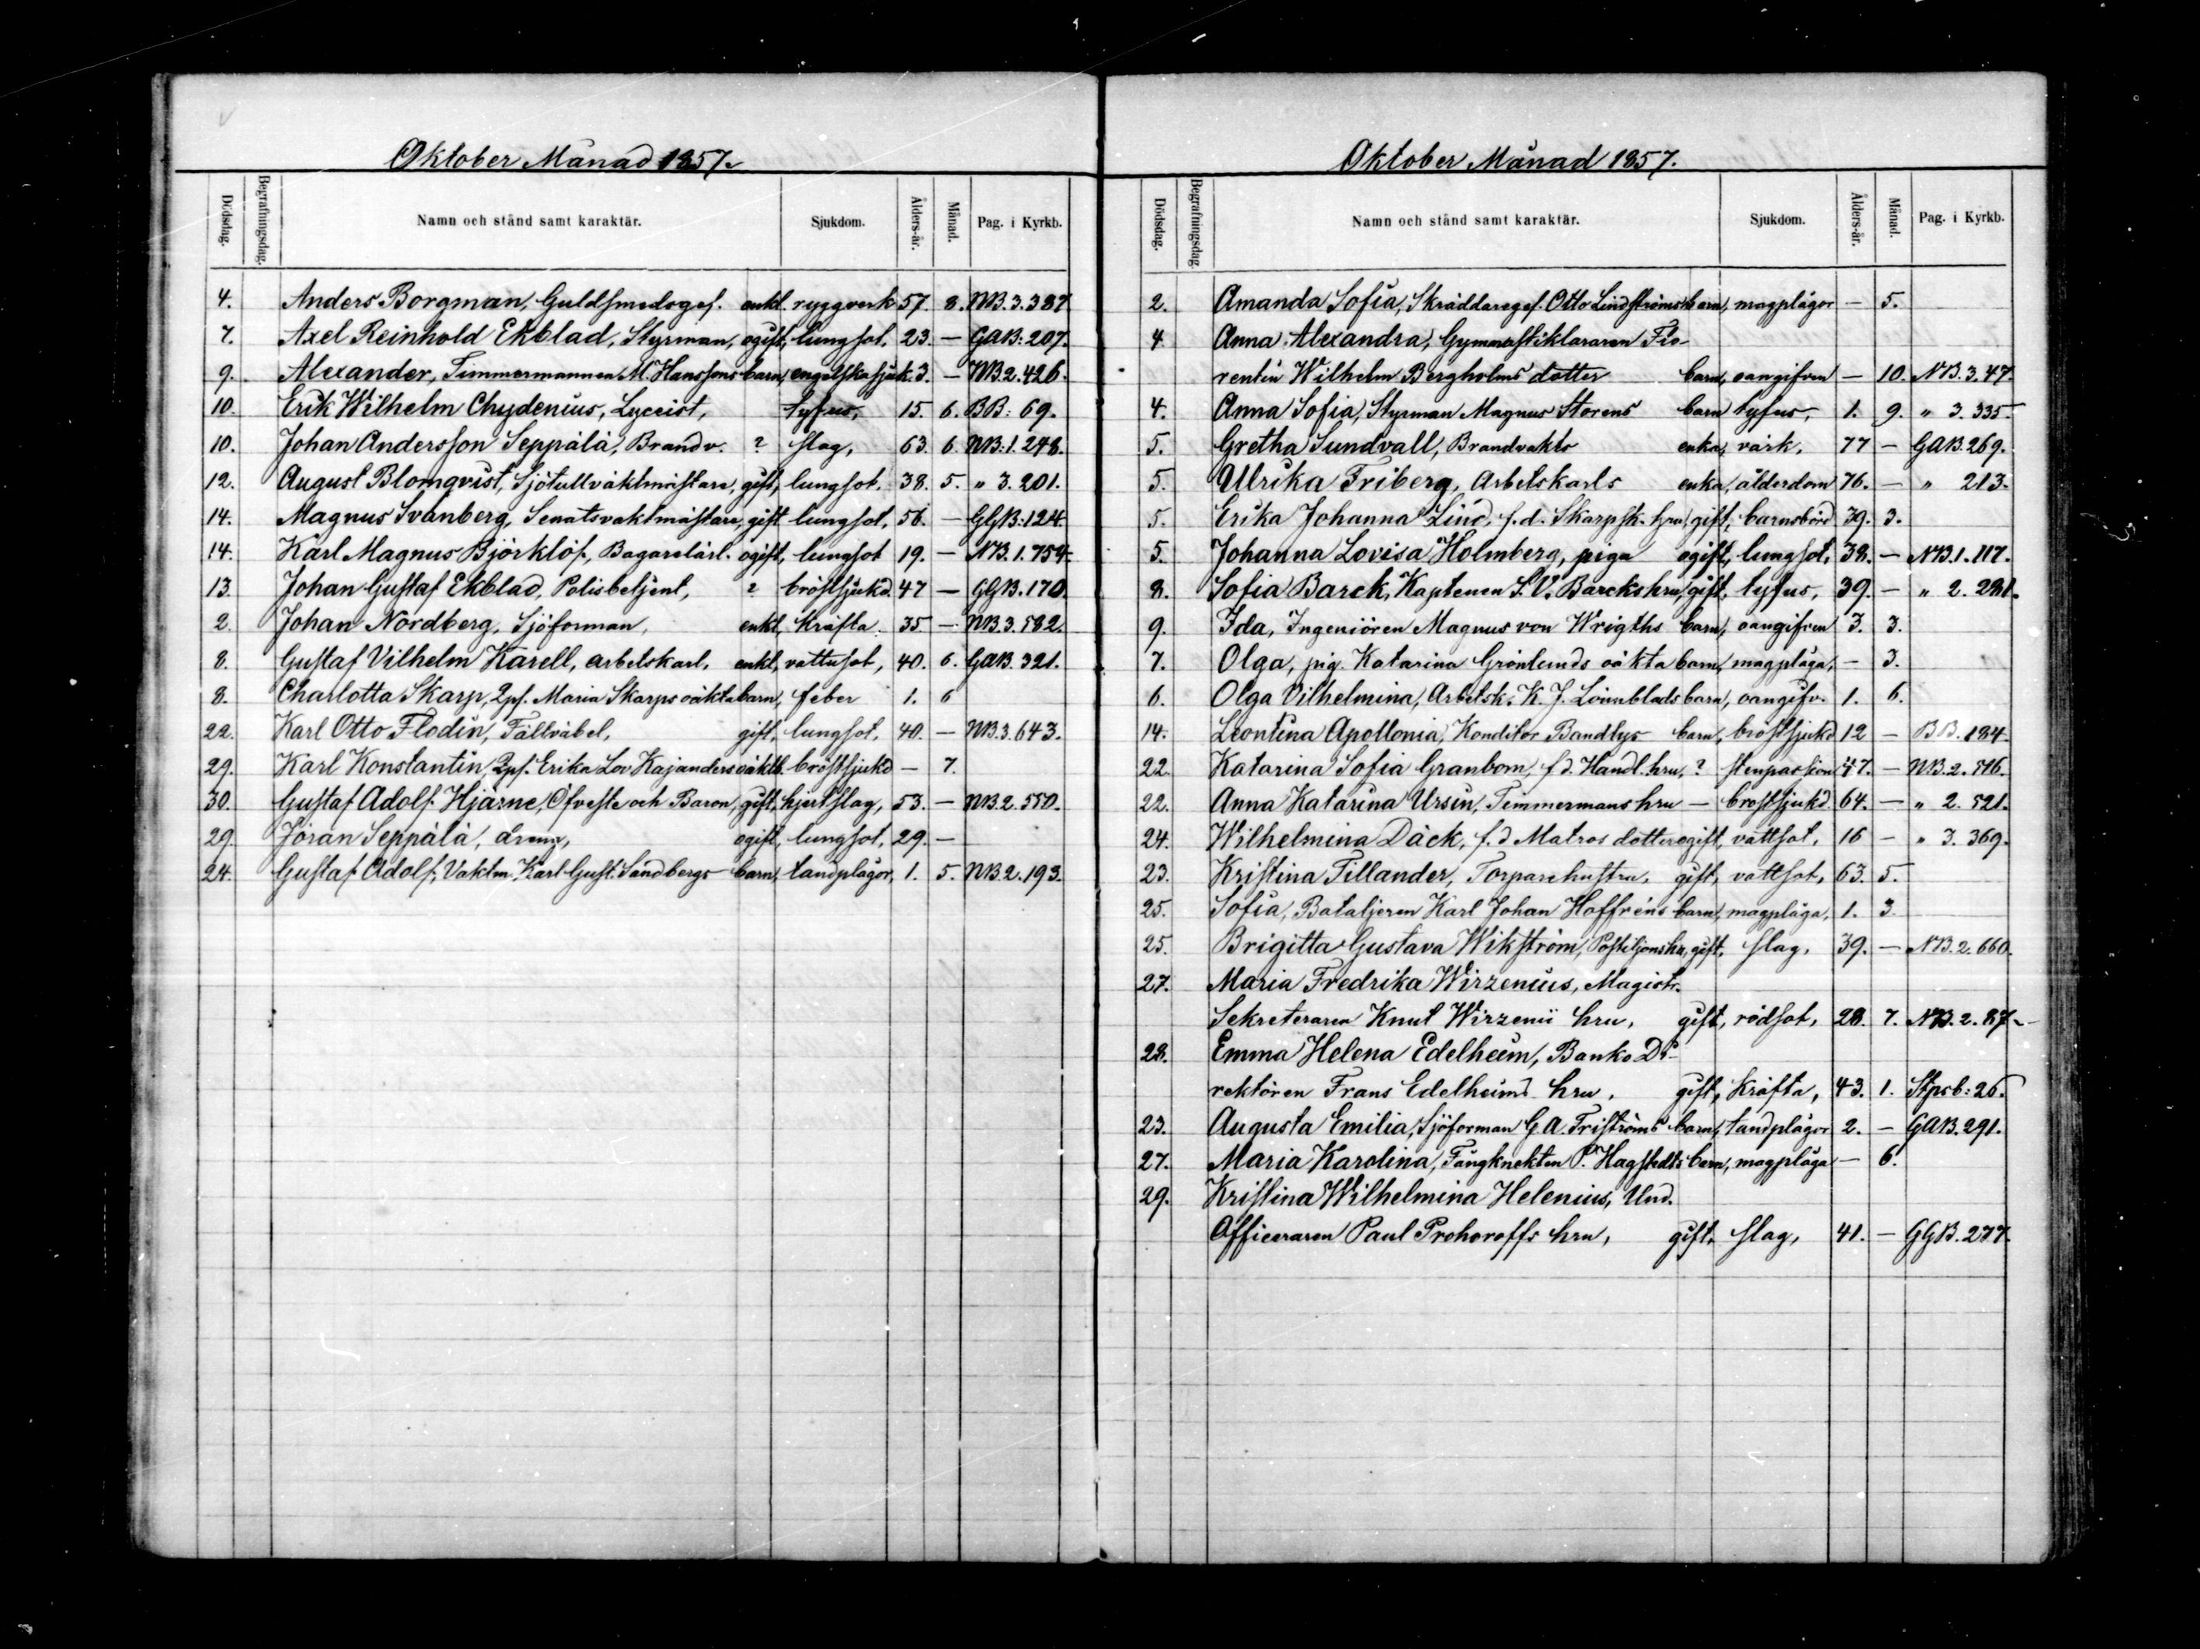 Oktober Månad 1857.
Dödsdag. Begrafningsdag. Namn och stånd samt karaktär. Sjukdom. Ålders-år. Månad. Pag. i Kyrkb.
4. Anders Borgman, Guldsmedsges. enkl. ryggverk 57. 8. NB. 3. 387
7. Axel Reinhold Ekblad, Styrman, ogift, lungsot, 23. — GAB: 207.
9. Alexander, Timmermannen M. Hanssons barn, engelska sjuk. 3. — NB. 2. 426.
10. Erik Wilhelm Chydenius, Lyceist, tyfus, 15. 6. BB: 69.
10. Johan Andersson Seppälä, Brandv. ? slag, 63. 6. NB: 1. 248.
12. August Blomqvist, Sjötullvaktmästare, gift, lungsot. 38. 5. " 3. 201.
14. Magnus Svanberg, Senatsvaktmästare, gift lungsot, 56. — GGB: 124.
14. Karl Magnus Björklöf, Bagarelärl. ogift, lungsot 19. — NB. 1. 754.
13. Johan Gustaf Ekblad, Polisbetjent, ? bröstsjukd. 47 — GGB. 170.
2. Johan Nordberg, Sjöforman, enkl, kräfta. 35 — NB. 3. 582.
8. Gustaf Vilhelm Karell, arbetskarl, enkl, vattusot, 40. 6. GAB. 321.
8. Charlotta Skarp, Qpf. Maria Skarps oäkta barn, feber 1. 6
22. Karl Otto Flodin, Fältväbel, gift, lungsot, 40. — NB. 3. 643.
29. Karl Konstantin, Qpf. Erika Lov. Kajanders oäkt b. bröstsjukd — 7.
30. Gustaf Adolf Hjärne, Öfverste och Baron, gift, hjertslag, 53. — NB. 2. 550.
29. Jöran Seppälä, dreng, ogift, lungsot, 29. —
24. Gustaf Adolf, Vaktm. Karl Gust. Sandbergs barn, tandplågor, 1. 5. NB. 2. 193.
Oktober Månad 1857.
Dödsdag. Begrafningsdag. Namn och stånd samt karaktär. Sjukdom. Ålders-år. Månad. Pag. i Kyrkb.
2. Amanda Sofia, Skräddareges. Otto Lindströms barn, magplågor — 5.
4. Anna Alexandra, Gymnastikläraren Flo-
rentin Wilhelm Bergholms dotter barn, oangifven — 10. NB. 3. 47.
4. Anna Sofia, Styrman Magnus Storens barn tyfus, 1. 9. " 3. 335.
5. Gretha Sundvall, Brandvakts enka, värk, 77 — GAB. 269.
5. Ulrika Friberg, Arbetskarls enka, ålderdom 76. — " 213.
5. Erika Johanna Lind, f.d. Skarpsk. hru, gift, barnsbörd 39. 3.
5. Johanna Lovisa Holmberg, piga ogift, lungsot, 38. — NB. 1. 117.
8. Sofia Barck, Kaptenen S. V. Barcks hru, gift, tyfus, 39. — " 2. 281.
9. Ida, Ingeniören Magnus von Wrigths barn, oangifven 3. 3.
7. Olga, pig. Katarina Grönlunds oäkta barn, magplåga, — 3.
6. Olga Vilhelmina, Arbetsk. K. J. Lönnblads barn, oangifv. 1. 6.
14. Leontina Apollonia, Konditor Bandlys barn, bröstsjukd 12 — BB. 184.
22. Katarina Sofia Granbom, f.d. Handl. hru, ? stenpassion 47. — NB. 2. 546.
22. Anna Katarina Ursin, Timmermans hru — bröstsjukd 64. — " 2. 521.
24. Wilhelmina Däck, f.d Matros dotter ogift, vattsot, 16 — " 3. 369.
23. Kristina Tillander, Torparehustru, gift, vattsot, 63. 5.
25. Sofia, Bataljeren Karl Johan Hoffréns barn, magplåga, 1. 3.
25. Brigitta Gustava Wikström, Postiljons hru, gift, slag, 39. — NB. 2. 660.
27. Maria Fredrika Wirzenius, Magistr.
Sekreteraren Knut Wirzenii hru, gift, rödsot, 28. 7. NB. 2. 87.
28. Emma Helena Edelheim, Banko Di-
rektören Frans Edelheims hru, gift, kräfta, 43. 1. Stpsb: 26.
23. Augusta Emilia, Sjöforman G. A. Friströms barn, tandplågor 2. — GAB. 291.
27. Maria Karolina, Fångknekten P. Hagstedts barn, magplåga — 6.
29. Kristina Wilhelmina Helenius, Und.
Officeraren Paul Prohoroffs hru, gift. slag, 41. — GGB. 277.